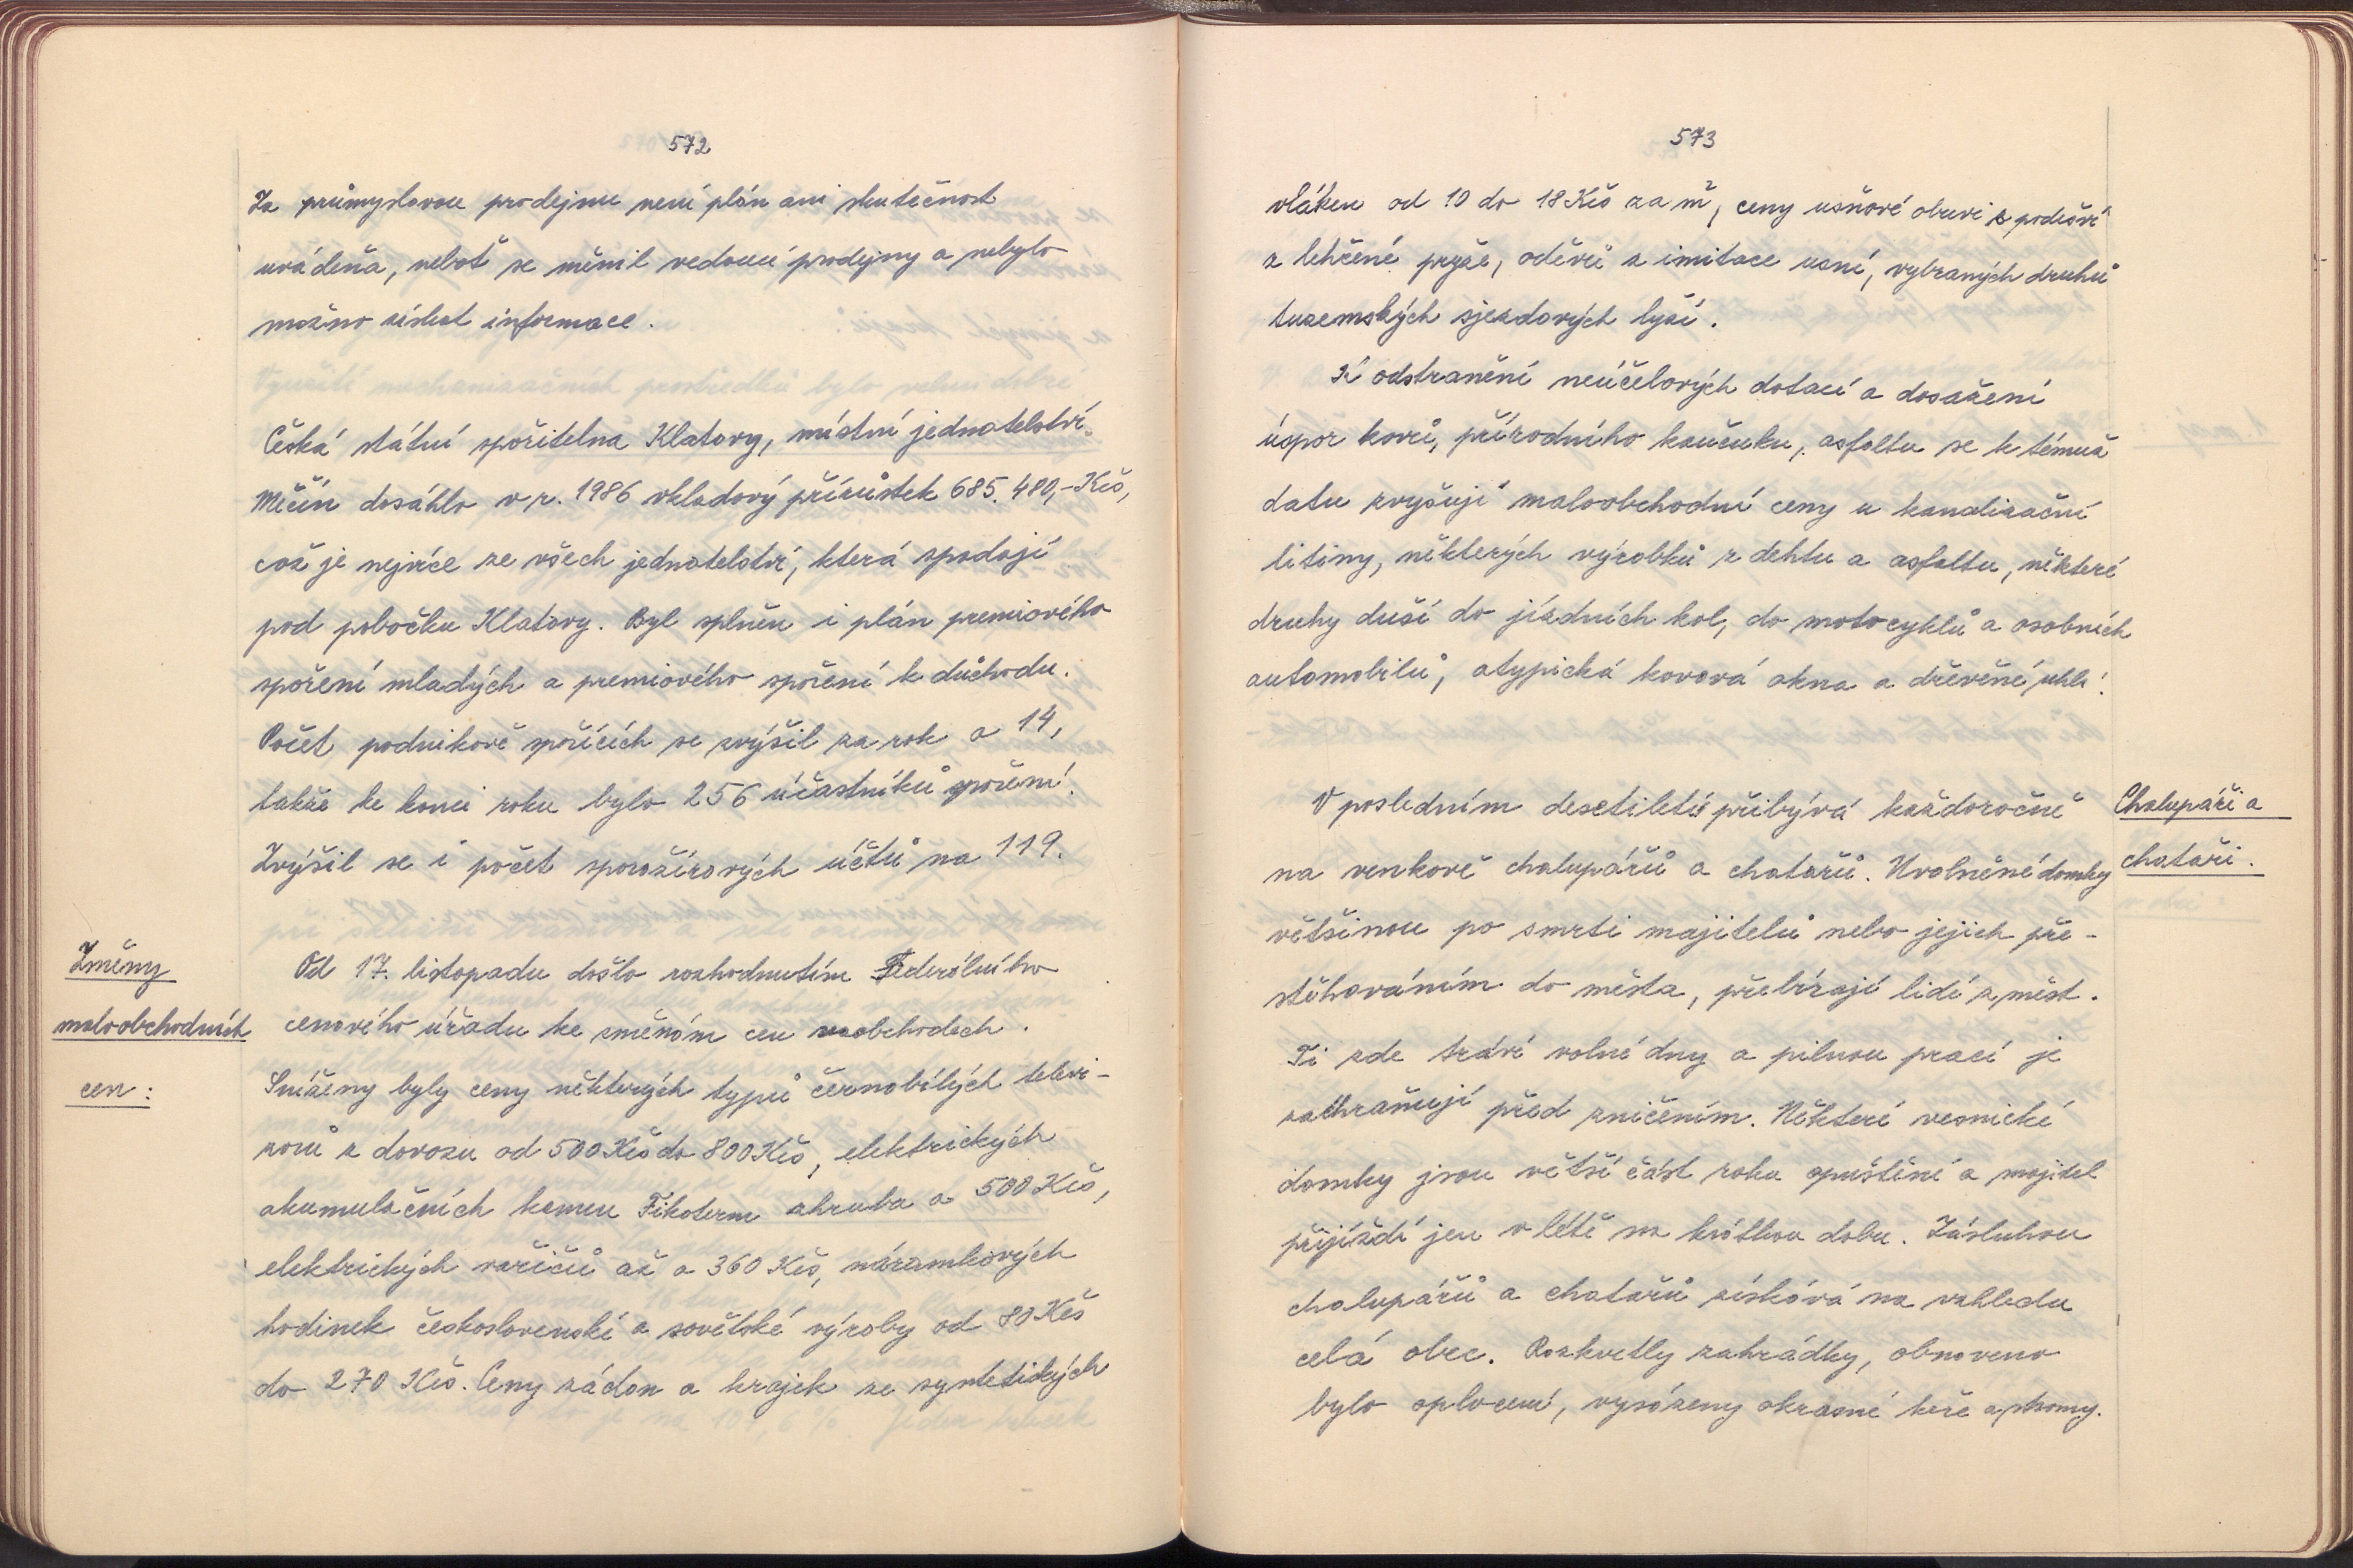 572
Za průmyslovou prodejnu není plán ani skutečnost
uváděna, neboť se měnil vedoucí prodejny a nebylo
možno získat informace.
Česká státní spořitelna Klatovy, místní jednatelství
Měčín dosáhlo v r. 1986 vkladový přírůstek 685.480,- Kčs,
což je nejvíce ze všech jednatelství, která spadají
pod pobočku Klatovy. Byl splněn i plán premiového
spoření mladých a premiového spoření k důchodu.
Počet podnikově spořících se zvýšil za rok o 14,
takže ke konci roku bylo 256 účastníků spoření.
Zvýšil se i počet sporožirových účtů na 119.
Změny
maloobchodních
cen:
Od 17. listopadu došlo rozhodnutím Federálního
cenového úřadu ke změnám cen v obchodech.
Sníženy byly ceny některých typů černobílých televi-
zorů z dovozu od 500 Kčs do 800 Kčs, elektrických
akumulačních kamen Fikoterm zhruba o 500 Kčs,
elektrických vařičů až o 360 Kčs, náramkových
hodinek československé a sovětské výroby od 80 Kčs
do 270 Kčs. Ceny záclon a krajek ze syntetických
573
vláken od 10 do 18 Kčs za m², ceny usňové obuvi s podešví
z lehčené pryže, oděvů z imitace usní, vybraných druhů
tuzemských sjezdových lyží.
K odstranění neúčelových dotací a dosažení
úspor kovů, přírodního kaučuku, asfaltu se k témuž
datu zvyšují maloobchodní ceny u kanalizační
litiny, některých výrobků z dehtu a asfaltu, některé
druhy duší do jízdních kol, do motocyklů a osobních
automobilů, atypická kovová okna a dřevěné uhlí.
Chalupáři a
chataři.
V posledním desetiletí přibývá každoročně
na venkově chalupářů a chatařů. Uvolněné domky
většinou po smrti majitelů nebo jejich pře-
stěhováním do města, přebírají lidé z měst.
Ti zde tráví volné dny a pilnou prací je
zachraňují před zničením. Některé vesnické
domky jsou větší část roku opuštěné a majitel
přijíždí jen v létě na krátkou dobu. Zásluhou
chalupářů a chatařů získává na vzhledu
celá obec. Rozkvetly zahrádky, obnoveno
bylo oplocení, vysázeny okrasné keře a stromy.